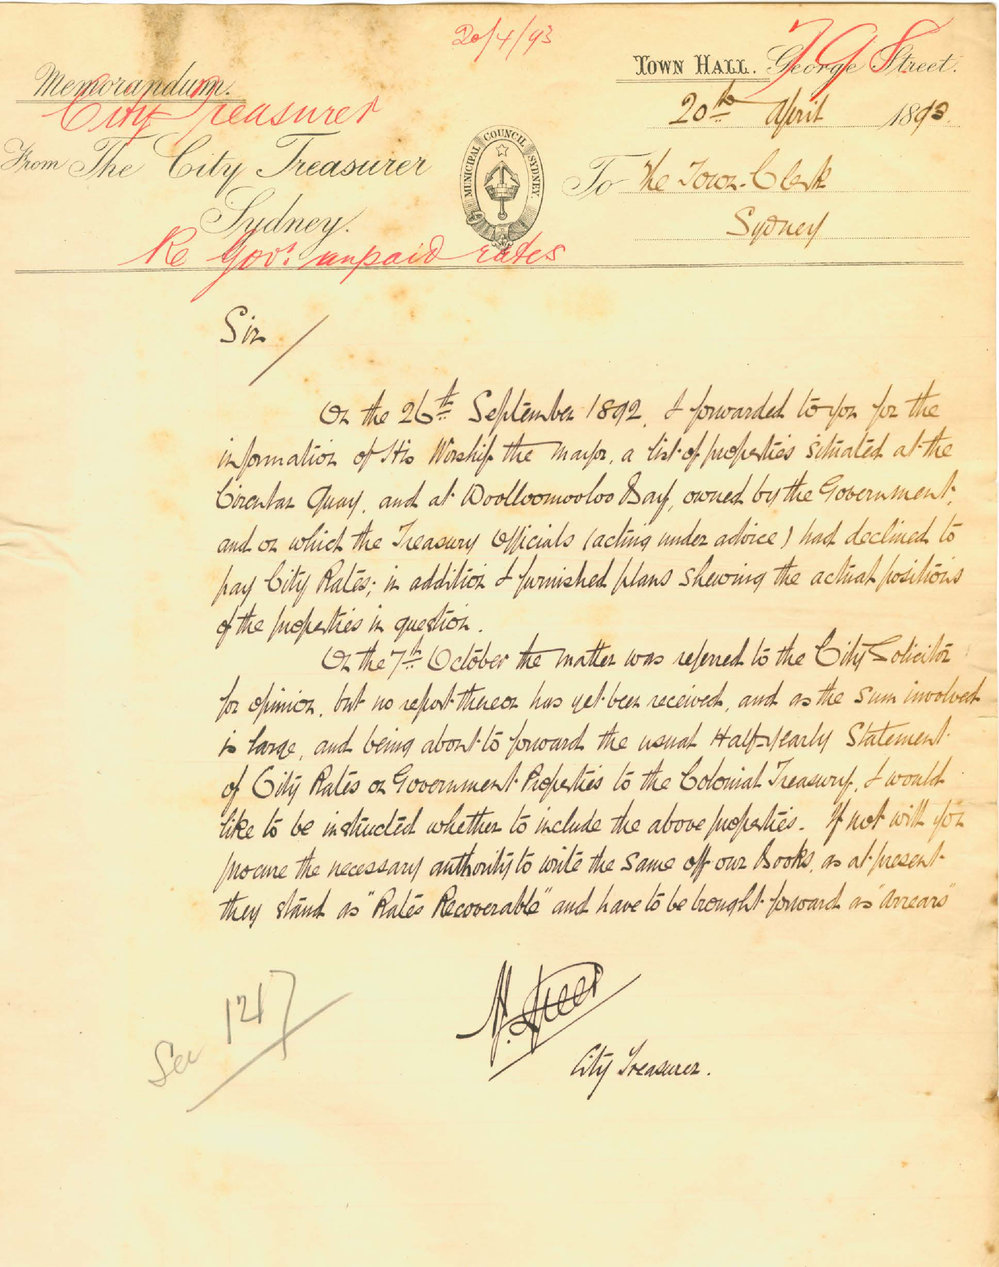 20/4/93
798
Memorandum.
TOWN HALL. George Street.
City Treasurer
20th April 1893
From The City Treasurer
MUNICIPAL COUNCIL SYDNEY.
To The Town Clerk
Sydney.
Sydney
Re Govt. unpaid rates
Sir
On the 26th September 1892, I forwarded to you for the
information of His Worship the Mayor, a list of properties situated at the
Circular Quay, and at Woolloomooloo Bay, owned by the Government,
and on which the Treasury Officials (acting under advice) had declined to
pay City Rates; in addition I furnished plans shewing the actual positions
of the properties in question.
On the 7th October the matter was referred to the City Solicitor
for opinion, but no report thereon has yet been received, and as the sum involved
is large, and being about to forward the usual Half-yearly Statement
of City Rates on Government Properties to the Colonial Treasury, I would
like to be instructed whether to include the above properties. If not will you
procure the necessary authority to write the same off our Books, as at present
they stand as "Rates Recoverable" and have to be brought forward as "Arrears"
City Treasurer.
See 1217